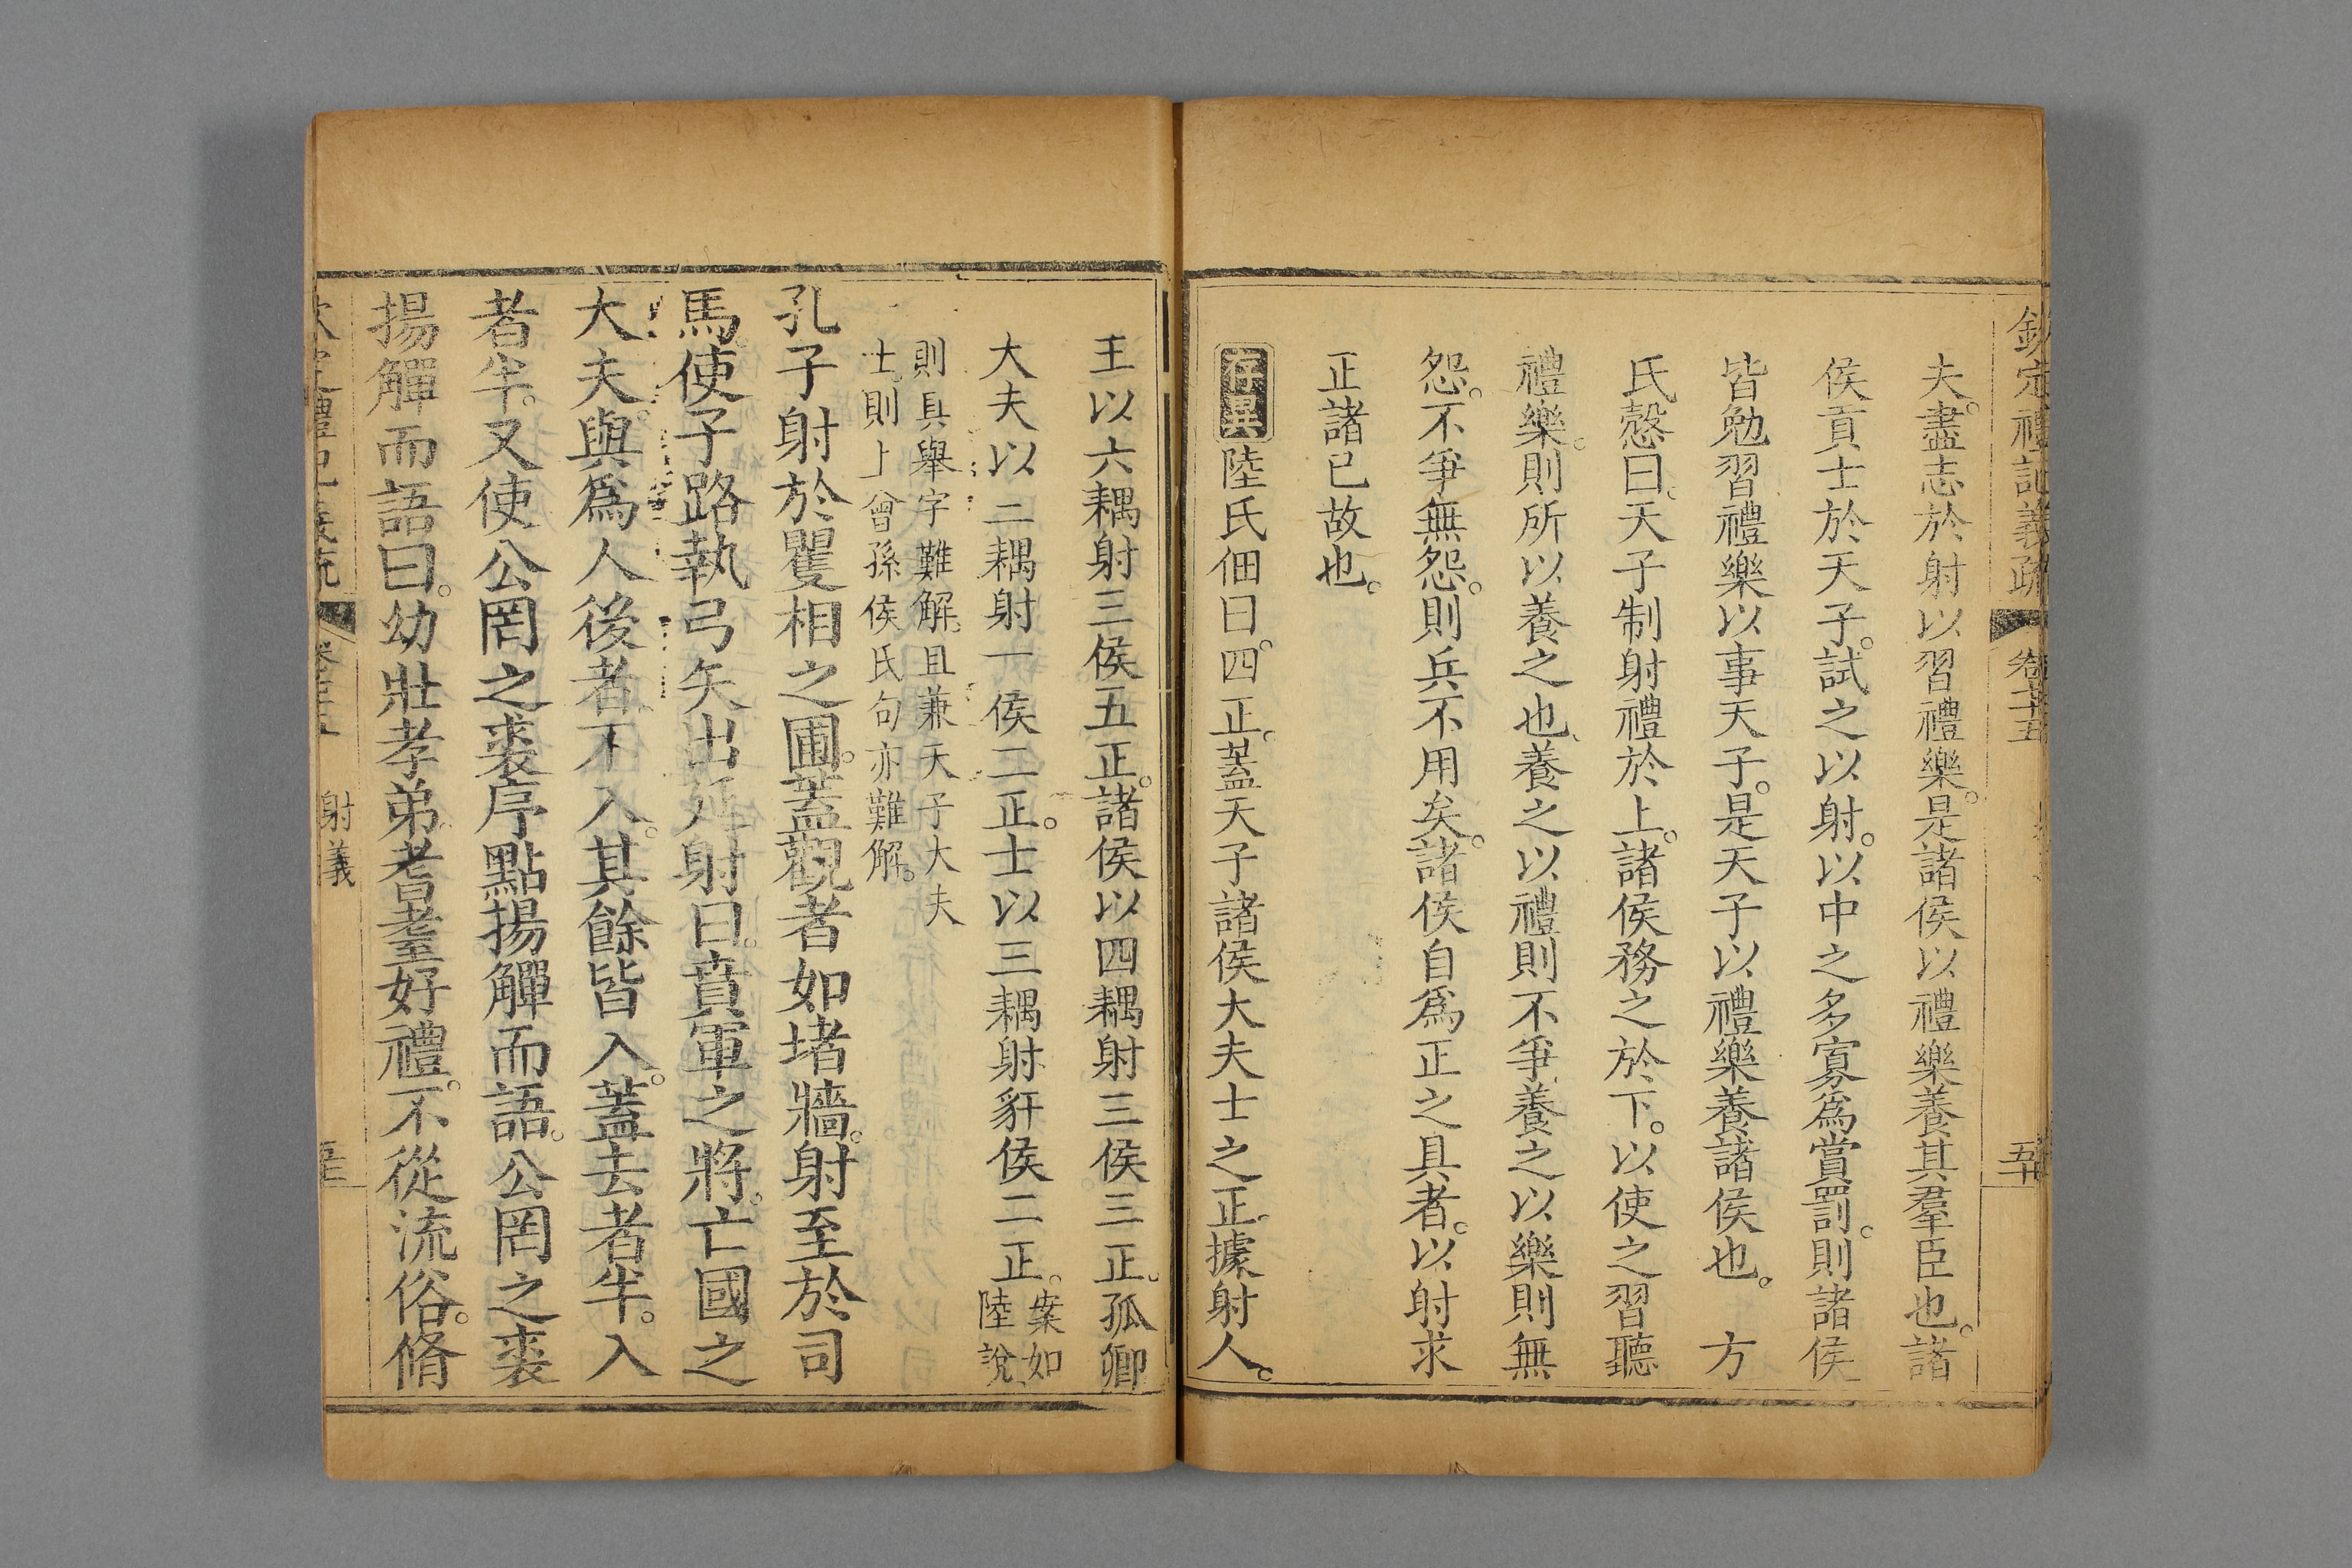 欽定禮記義疏 卷七十五 五十
夫。盡志於射以習禮樂。是諸侯以禮樂養其羣臣也。諸
侯貢士於天子。試之以射。以中之多寡爲賞罰。則諸侯
皆勉習禮樂以事天子。是天子以禮樂養諸侯也。 方
氏慤曰。天子制射禮於上。諸侯務之於下。以使之習聽
禮樂。則所以養之也、養之以禮則不爭、養之以樂則無
怨。不爭無怨。則兵不用矣。諸侯自爲正之具者。以射求
正諸已故也。
存異陸氏佃曰。四正。蓋天子諸侯大夫士之正。據射人。
王以六耦射三侯五正。諸侯以四耦射三侯三正。孤卿
大夫以二耦射一侯二正。士以三耦射豻侯二正。案如
陸說、
則具舉字難解。且兼天子大夫
士。則上曾孫侯氏句亦難解。
孔子射於矍相之圃。蓋觀者如堵牆。射至於司
馬。使子路執弓矢出延射曰。賁軍之將。亡國之
大夫。與爲人後者。不入。其餘皆入。蓋去者半。入
者半。又使公罔之裘序點揚觶而語。公罔之裘
揚觶而語曰。幼壯孝弟。耆耋好禮。不從流俗。脩
射義